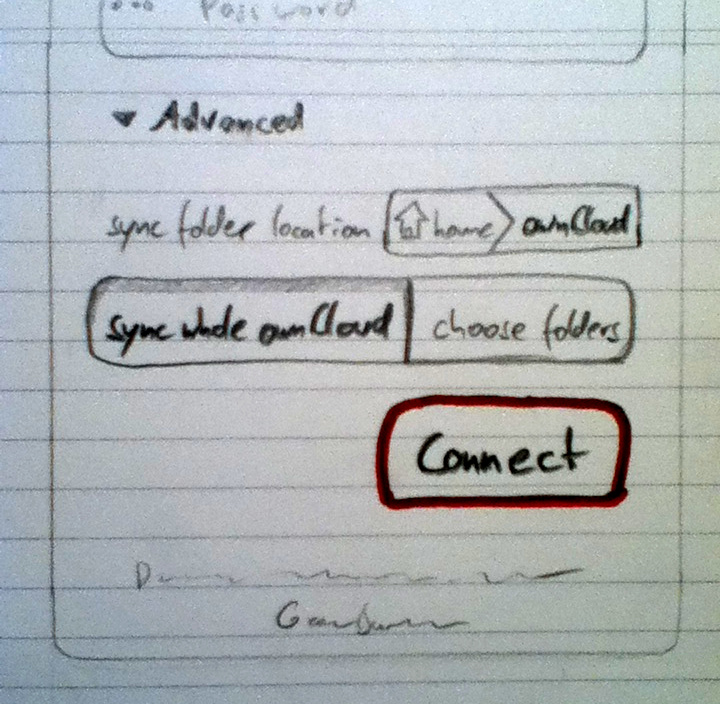 ... Password
▾ Advanced
sync folder location home > ownCloud
sync whole ownCloud choose folders
Connect